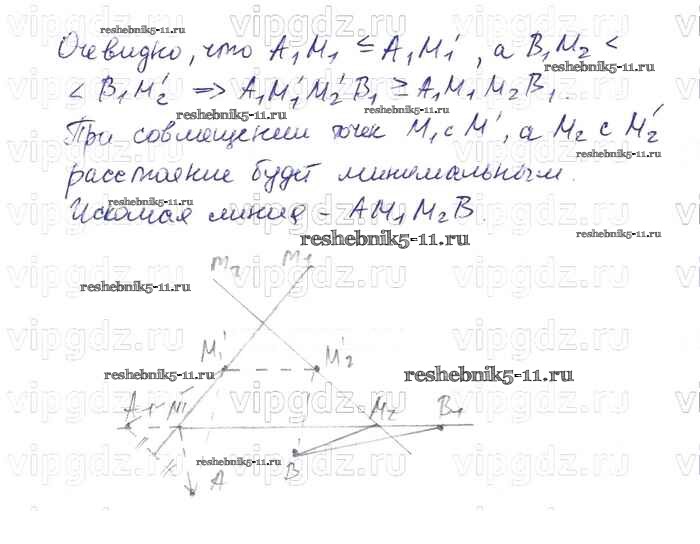 Очевидно, что A₁M₁ ≤ A₁M₁', а B₁M₂ <
< B₁M₂' => A₁M₁'M₂'B₁ ≥ A₁M₁M₂B₁.
При совмещении точек M₁ с M', а M₂ с M₂'
расстояние будет минимальным.
Искомая линия - AM₁M₂B.
m₂ m₁
M₁' M₂'
A₁ M₁ M₂ B₁
B
A
reshebnik5-11.ru
vipgdz.ru